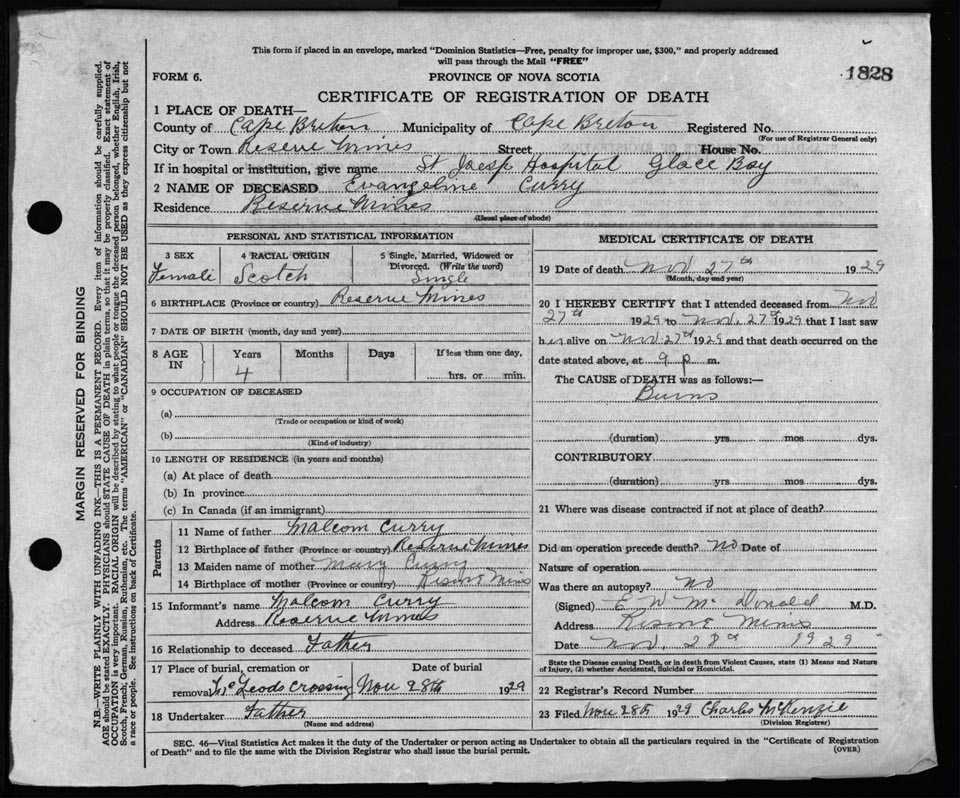 This form if placed in an envelope, marked "Dominion Statistics—Free, penalty for improper use, $300," and properly addressed
will pass through the Mail "FREE"
1828
FORM 6.
PROVINCE OF NOVA SCOTIA
CERTIFICATE OF REGISTRATION OF DEATH
1 PLACE OF DEATH—
County of Cape Breton Municipality of Cape Breton Registered No.
(For use of Registrar General only)
City or Town Reserve Mines Street House No.
If in hospital or institution, give name St Joesp Hospital Glace Bay
2 NAME OF DECEASED Evangeline Curry
Residence Reserve Mines
(Usual place of abode)
PERSONAL AND STATISTICAL INFORMATION
3 SEX
Female
4 RACIAL ORIGIN
Scotch
5 Single, Married, Widowed or
Divorced. (Write the word)
Single
6 BIRTHPLACE (Province or country) Reserve Mines
7 DATE OF BIRTH (month, day and year)
8 AGE
IN
Years
4
Months
Days
If less than one day,
hrs. or min.
9 OCCUPATION OF DECEASED
(a)
(Trade or occupation or kind of work)
(b)
(Kind of industry)
10 LENGTH OF RESIDENCE (in years and months)
(a) At place of death
(b) In province
(c) In Canada (if an immigrant)
Parents
11 Name of father Malcom Curry
12 Birthplace of father (Province or country) Reserve Mines
13 Maiden name of mother Mary Curry
14 Birthplace of mother (Province or country) Reserve Mines
15 Informant's name Malcom Curry
Address Reserve Mines
16 Relationship to deceased Father
17 Place of burial, cremation or
Date of burial
removal McLeods Crossing Nov 28th 1929
18 Undertaker Father
(Name and address)
MEDICAL CERTIFICATE OF DEATH
19 Date of death Nov 27th 1929
(Month, day and year)
20 I HEREBY CERTIFY that I attended deceased from Nov
27th 1929 to Nov. 27th 1929 that I last saw
her alive on Nov. 27th 1929 and that death occurred on the
date stated above, at 9 p m.
The CAUSE of DEATH was as follows:—
Burns
(duration) yrs mos dys.
CONTRIBUTORY
(duration) yrs. mos. dys.
21 Where was disease contracted if not at place of death?
Did an operation precede death? No Date of
Nature of operation
Was there an autopsy? No
(Signed) E W McDonald M.D.
Address Reserve Mines
Date Nov. 28th 1929
State the Disease causing Death, or in death from Violent Causes, state (1) Means and Nature
of Injury, (2) whether Accidental, Suicidal or Homicidal.
22 Registrar's Record Number
23 Filed Nov 28th 1929 Charles McKenzie
(Division Registrar)
SEC. 46—Vital Statistics Act makes it the duty of the Undertaker or person acting as Undertaker to obtain all the particulars required in the "Certificate of Registration
of Death" and to file the same with the Division Registrar who shall issue the burial permit.
(OVER)
MARGIN RESERVED FOR BINDING
N.B.—WRITE PLAINLY WITH UNFADING INK—THIS IS A PERMANENT RECORD. Every item of information should be carefully supplied.
AGE should be stated EXACTLY. PHYSICIANS should STATE CAUSE OF DEATH in plain terms, so that it may be properly classified. Exact statement of
OCCUPATION is very important. RACIAL ORIGIN will be described by stating to what people or tongue the deceased person belonged, whether English, Irish,
Scotch, French, German, Russian, Ruthenian, etc. The terms "AMERICAN" or "CANADIAN" SHOULD NOT BE USED as they express citizenship but not
a race or people. See instructions on back of Certificate.